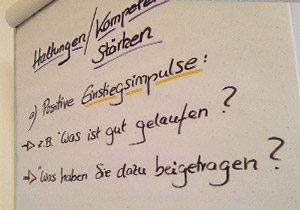 Haltungen/Kompeten
Stärken
a) Positive Einstiegsimpulse:
→ z.B. "Was ist gut gelaufen?
→ "Was haben Sie dazu beigetragen?